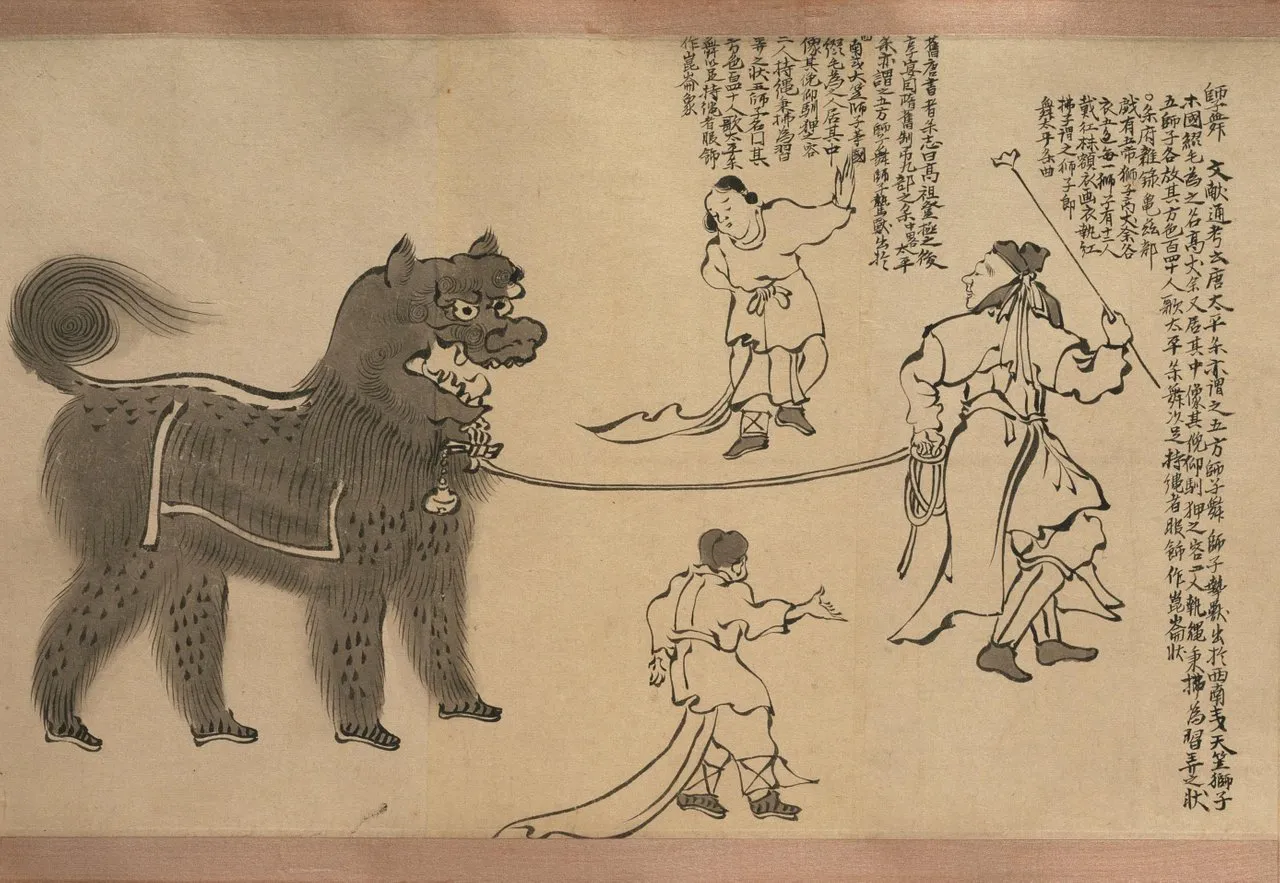 師舞 文献通考云唐太平楽亦謂之五方師子舞師子摯獣出於西南夷天竺獅子
木國綴毛為之各高丈余又居其中像其俛仰馴狎之容二人執縄秉拂為習弄之状
五師子各放其方色百四十人歌太平楽舞以足持縄者服飾作崑崙状
〇楽府雑録亀茲部
戯有五常獅子高丈余各
衣五色毎一獅子有十二人
戴紅抹額衣画衣執紅
拂子謂之獅子郎
舞太平楽曲
舊唐書音楽志曰髙祖登極之後
享宴因隋舊制用九部之楽中畧太平
楽亦謂之五方師子舞師子摯獣出於
西南夷天竺師子等國
綴毛為之人居其中
像其俛仰馴狎之容
二人持縄秉拂為習
弄之状五師子各其
方色百四十人歌太平楽
舞以足持縄者服飾
作崑崙象